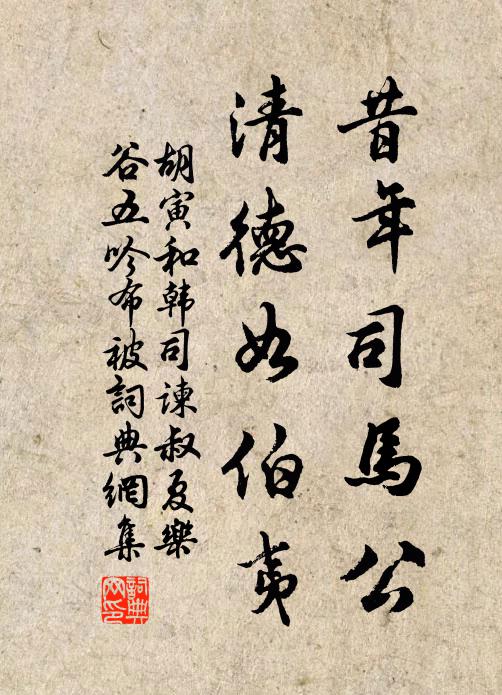 昔年司馬公
清德如伯夷
胡寅和韩司諫叔夏樂
谷五吟布被詞典網集
詞典
网印